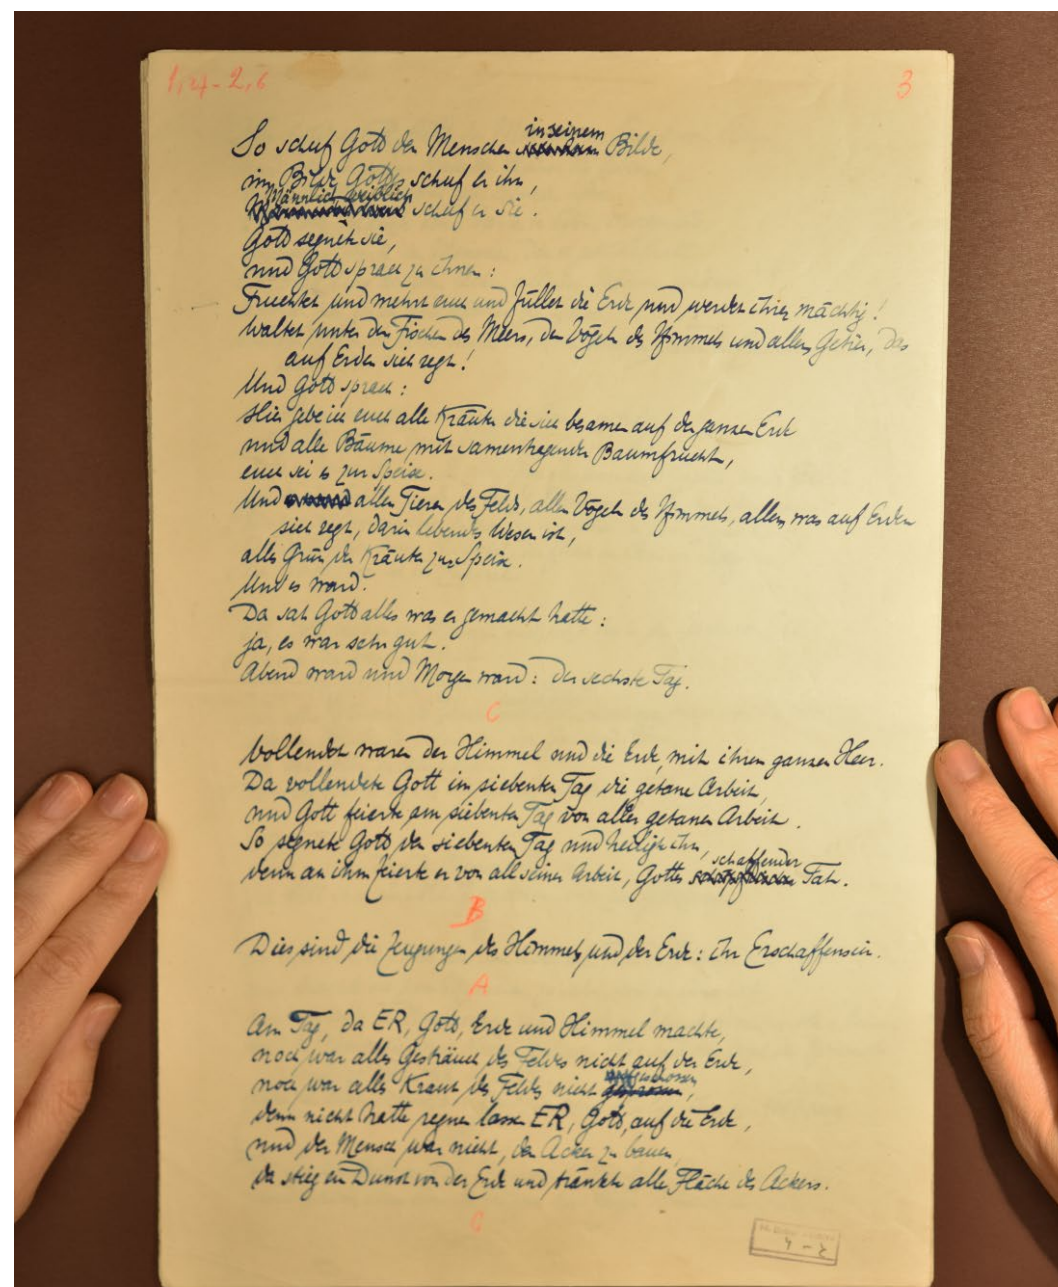 1,27 - 2,6
3
So schuf Gott den Menschen in seinem Bilde,
im Bilde Gottes schuf er ihn,
Männlich, weiblich schuf er sie.
Gott segnete sie,
und Gott sprach zu ihnen:
Fruchtet und mehrt euch und füllet die Erde und werdet ihrer mächtig!
Waltet unter den Fischen des Meers, den Vögeln des Himmels und allem Getier, das
auf Erden sich regt!
Und Gott sprach:
Hier gebe ich euch alle Kräuter die sich besamen auf der ganzen Erde
und alle Bäume mit samentragender Baumfrucht,
euch sei es zur Speise.
Und allen Tieren des Felds, allen Vögeln des Himmels, allem was auf Erden
sich regt, darin lebendes Wesen ist,
alles Grün der Kräuter zur Speise.
Und es ward.
Da sah Gott alles was er gemacht hatte:
ja, es war sehr gut.
Abend ward und Morgen ward: der sechste Tag.
C
Vollendet waren der Himmel und die Erde, mit ihrem ganzen Heer.
Da vollendete Gott im siebenten Tag die getane Arbeit,
und Gott feierte am siebenten Tag von aller getanen Arbeit.
So segnete Gott den siebenten Tag und heiligte ihn,
denn an ihm feierte er von all seiner Arbeit, Gottes schaffender Tat.
B
Dies sind die Zeugungen des Himmels und der Erde: ihr Erschaffensein.
A
Am Tag, da ER, Gott, Erde und Himmel machte,
noch war alles Gesträuch des Feldes nicht auf der Erde,
noch war alles Kraut des Felds nicht aufgeschossen,
denn nicht hatte regnen lassen ER, Gott, auf die Erde,
und der Mensch war nicht, den Acker zu bauen
da stieg ein Dunst von der Erde und tränkte alle Fläche des Ackers.
C